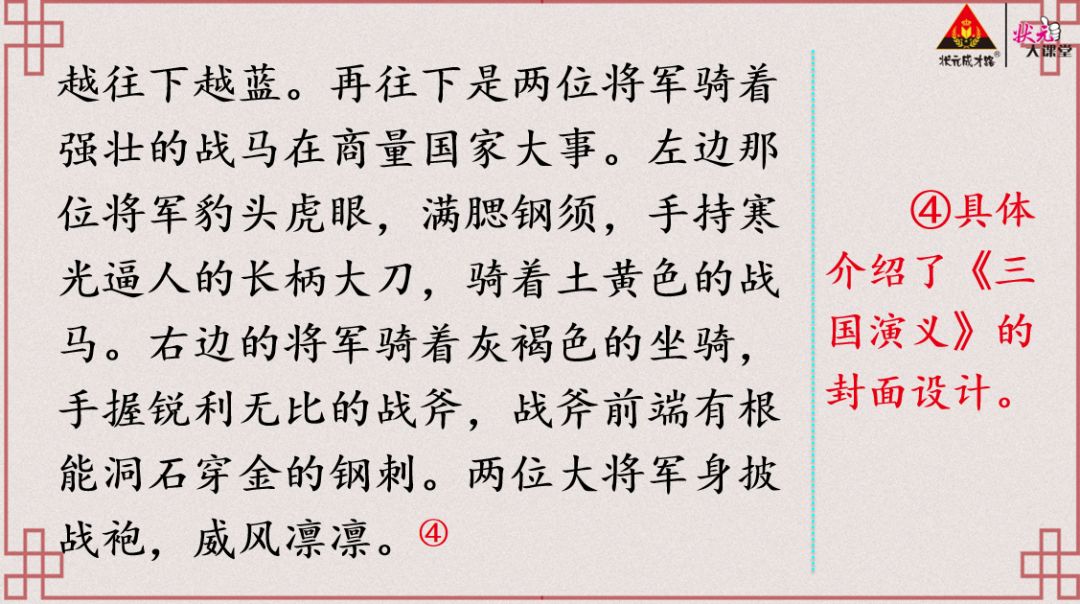 状元成才路®
状元
大课堂
越往下越蓝。再往下是两位将军骑着
强壮的战马在商量国家大事。左边那
位将军豹头虎眼，满腮钢须，手持寒
光逼人的长柄大刀，骑着土黄色的战
马。右边的将军骑着灰褐色的坐骑，
手握锐利无比的战斧，战斧前端有根
能洞石穿金的钢刺。两位大将军身披
战袍，威风凛凛。④
④具体
介绍了《三
国演义》的
封面设计。